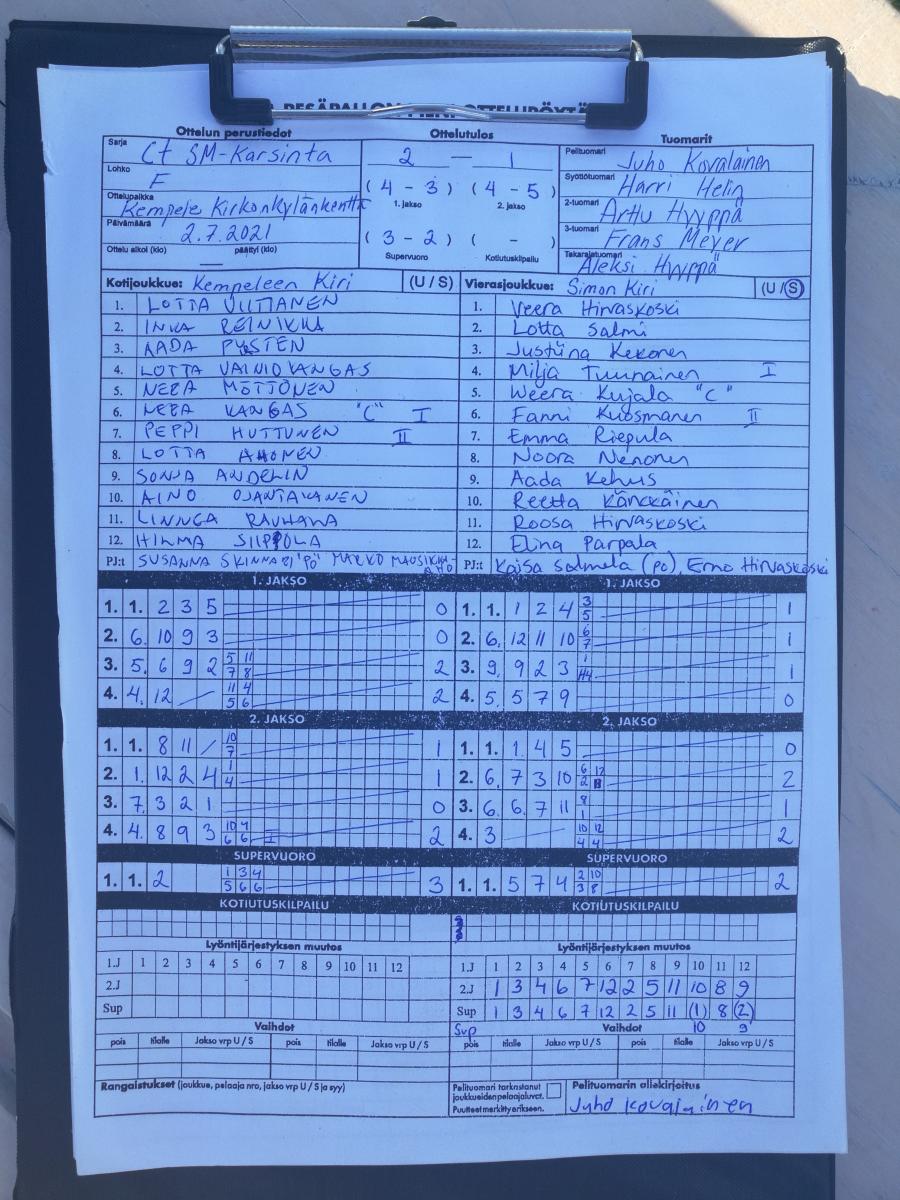 Ottelun perustiedot Ottelutulos Tuomarit
Sarja Ct SM-Karsinta
Lohko F
Ottelupaikka Kempele Kirkonkylänkenttä
Päivämäärä 2.7.2021
Ottelu alkoi (klo) — päättyi (klo)
2 — 1
( 4 - 3 ) ( 4 - 5 )
1. jakso 2. jakso
( 3 - 2 ) ( - )
Supervuoro Kotiutuskilpailu
Pelituomari Juho Kovalainen
Syöttötuomari Harri Helin
2-tuomari Arttu Hyyppä
3-tuomari Frans Meyer
Takarajatuomari Aleksi Hyyppä
Kotijoukkue: Kempeleen Kiri (U / S)
1. LOTTA VIITTANEN
2. INKA REINIKKA
3. AADA PYSTEN
4. LOTTA VAINIOKANGAS
5. NEEA MÖTTÖNEN
6. NEEA KANGAS "C" I
7. PEPPI HUTTUNEN II
8. LOTTA AHONEN
9. SONJA ANDELIN
10. AINO OJANTAKANEN
11. LINNEA RAUHALA
12. HILMA SIIPPOLA
PJ:t SUSANNA SKINNARI "PÖ" MARKO
Vierasjoukkue: Simon Kiri (U / S)
1. Veera Hirvaskoski
2. Lotta Salmi
3. Justiina Kekonen
4. Milja Tuunainen I
5. Weera Kujala "C"
6. Fanni Kuosmanen II
7. Emma Riepula
8. Noora Nenonen
9. Aada Kehus
10. Reetta Känckäinen
11. Roosa Hirvaskoski
12. Elina Parpala
PJ:t Kaisa Salmela (po), Erno Hirvaskoski
1. JAKSO 1. JAKSO
1. 1. 2 3 5 0 1. 1. 1 2 4 3 5 1
2. 6. 10 9 3 0 2. 6. 12 11 10 6 7 1
3. 5. 6 9 2 5 11 7 8 2 3. 9. 9 2 3 1 1
4. 4. 12 — 11 4 5 6 2 4. 5. 5 7 9 0
2. JAKSO 2. JAKSO
1. 1. 8 11 / 10 7 1 1. 1. 1 4 5 0
2. 1. 12 2 4 1 4 1 2. 6. 7 3 10 6 12 2 2
3. 7. 3 2 1 0 3. 6. 6 7 11 8 1 1
4. 4. 8 9 3 10 4 6 6 I 2 4. 3 — 10 12 4 4 2
SUPERVUORO SUPERVUORO
1. 1. 2 1 3 4 5 6 6 3 1. 1. 5 7 4 2 10 3 8 2
KOTIUTUSKILPAILU KOTIUTUSKILPAILU
Lyöntijärjestyksen muutos
1.J 1 2 3 4 5 6 7 8 9 10 11 12
2.J
Sup
Vaihdot
pois tilalle Jakso vrp U / S pois tilalle Jakso vrp U / S
Lyöntijärjestyksen muutos
1.J 1 2 3 4 5 6 7 8 9 10 11 12
2.J 1 3 4 6 7 12 2 5 11 10 8 9
Sup 1 3 4 6 7 12 2 5 11 (1) 8 (2)
Sup Vaihdot 10 9
pois tilalle Jakso vrp U / S pois tilalle Jakso vrp U / S
Rangaistukset (joukkue, pelaaja nro, jakso vrp U / S ja syy)
Pelituomari tarkistanut
joukkueiden pelaajaluvat.
Puutteet merkitty erikseen.
Pelituomarin allekirjoitus
Juho Kovalainen